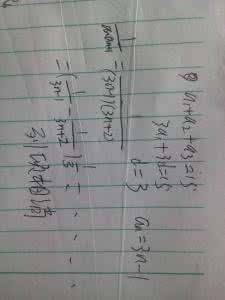 ① a₁+a₂+a₃=15
3a₁+3d=15
d=3
aₙ=3n-1
1/(anan+1)
= 1/((3n-1)(3n+2))
=(1/(3n-1) - 1/(3n+2))1/3